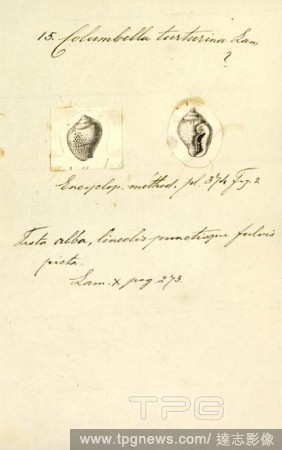 15. Columbella turturina Lam
?
Encyclop. méthod. pl. 374 Fig. 2
Testa alba, lineolis punctisque fulvis
picta.
Lam. X pag. 273
TPG
www.tpgnews.com / 達志影像